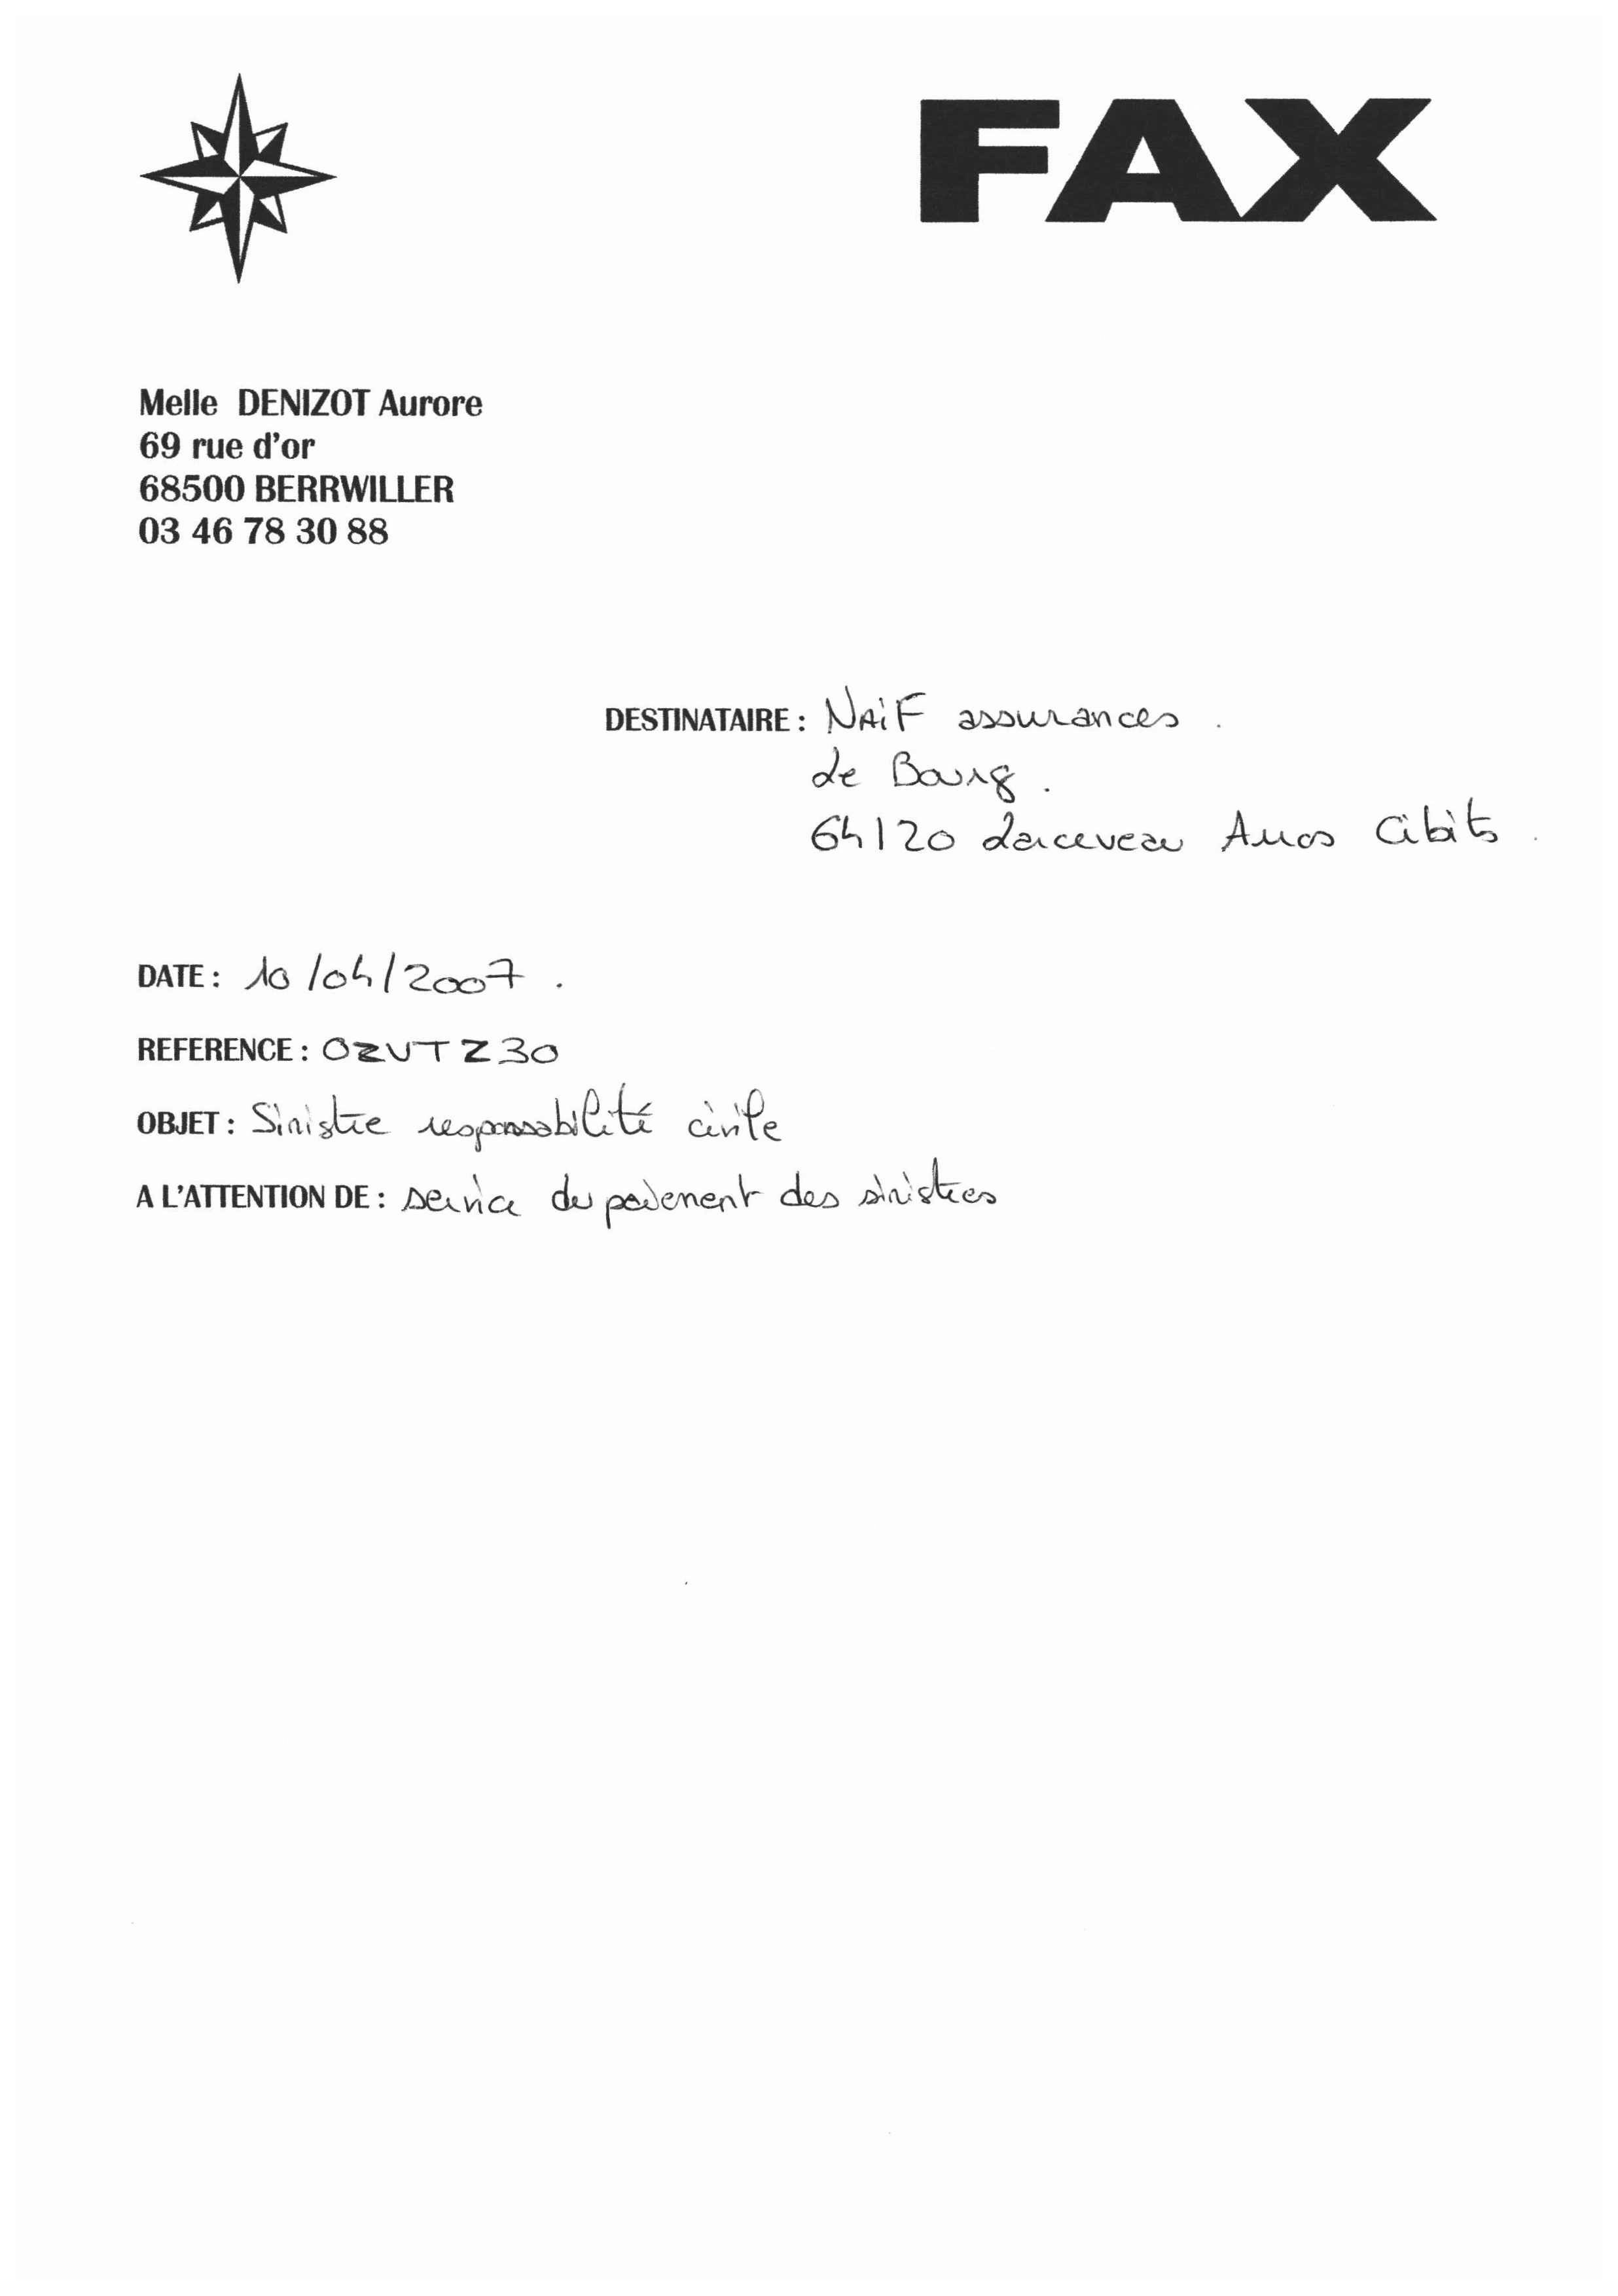 FAX
Melle DENIZOT Aurore
69 rue d'or
68500 BERRWILLER
03 46 78 30 88
DESTINATAIRE : NAiF assurances .
de Bourg .
64120 Larceveau Arros Cibits .
DATE : 10/04/2007 .
REFERENCE : OZUTZ30
OBJET : Sinistre responsabilité civile
A L'ATTENTION DE : service du paiement des sinistres